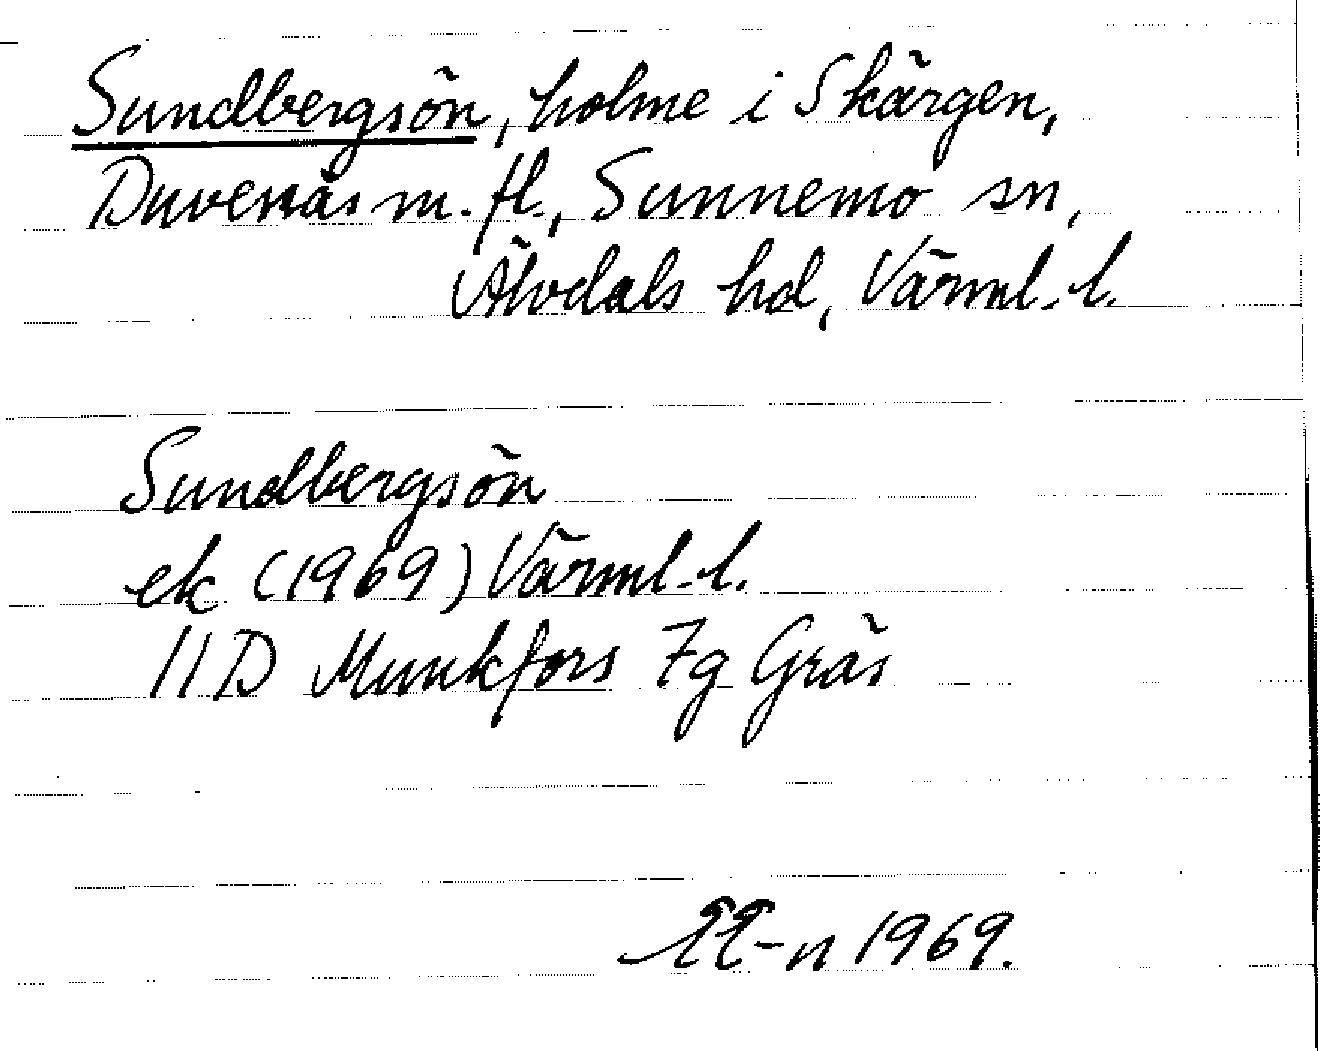 Sundbergsön, holme i Skärgen,
Duvenäs m. fl., Sunnemo sn,
Älvdals hd, Värml. l.
Sundbergsön
ek (1969) Värml. l.
11D Munkfors 7g Gräs
1969.